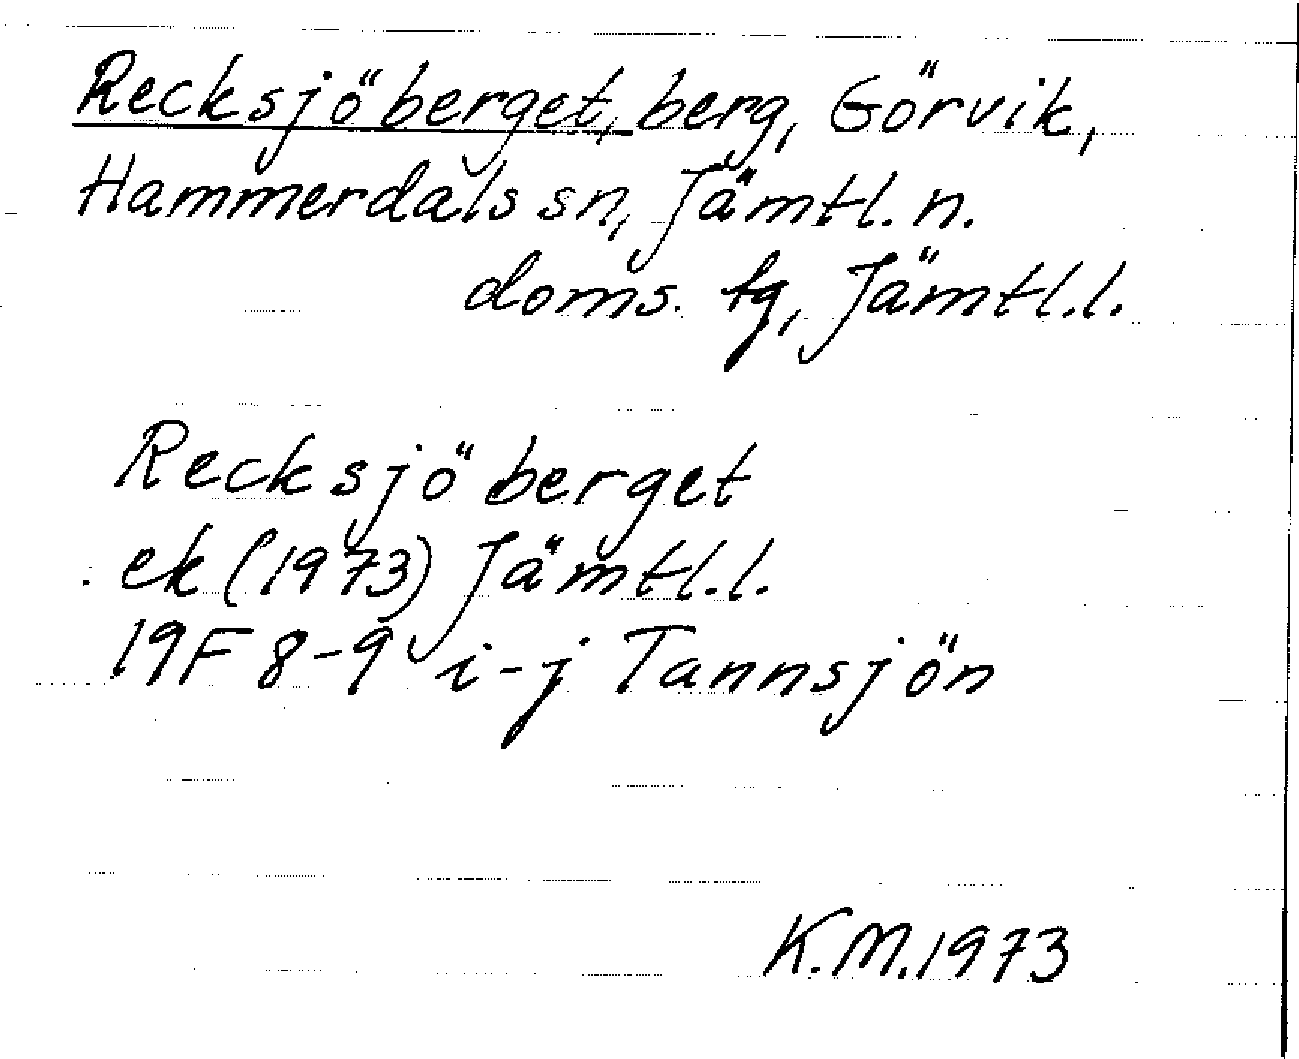 Recksjöberget, berg, Görvik,
Hammerdals sn, Jämtl. n.
doms. tg, Jämtl. l.
Recksjöberget
ek (1973) Jämtl. l.
19F 8-9 i-j Tannsjön
K.M. 1973